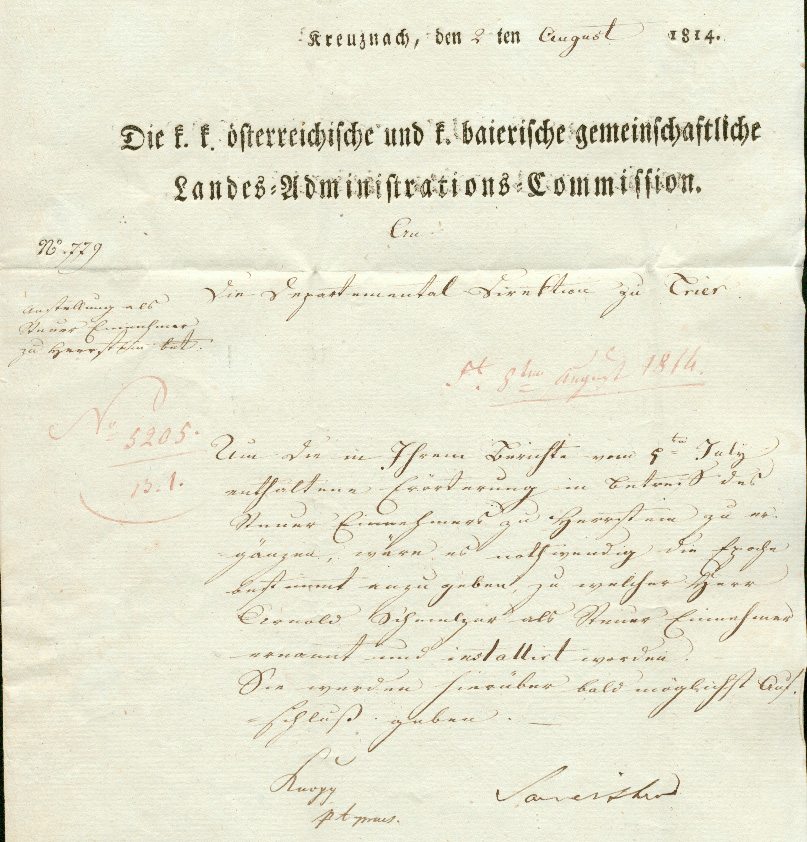 Kreuznach, den 2 ten August 1814.
Die k. k. österreichische und k. baierische gemeinschaftliche
Landes-Administrations-Commission.
An
No. 779
die Departemental Direktion zu Trier.
Anstellung als
Steuer Einnehmer
zu Herrstein bet.
8ten August 1814.
No
5205.
13.1.
Um die in Ihrem Berichte vom 5ten July
enthaltene Erörterung in Betreff des
Steuer Einnehmers zu Herrstein zu er-
gänzen, wäre es nothwendig die Epoche
bestimmt anzugeben, zu welcher Herr
Arnold als Steuer Einnehmer
ernannt und installirt worden.
Sie werden hierüber bald möglichst Auf-
schluß geben.